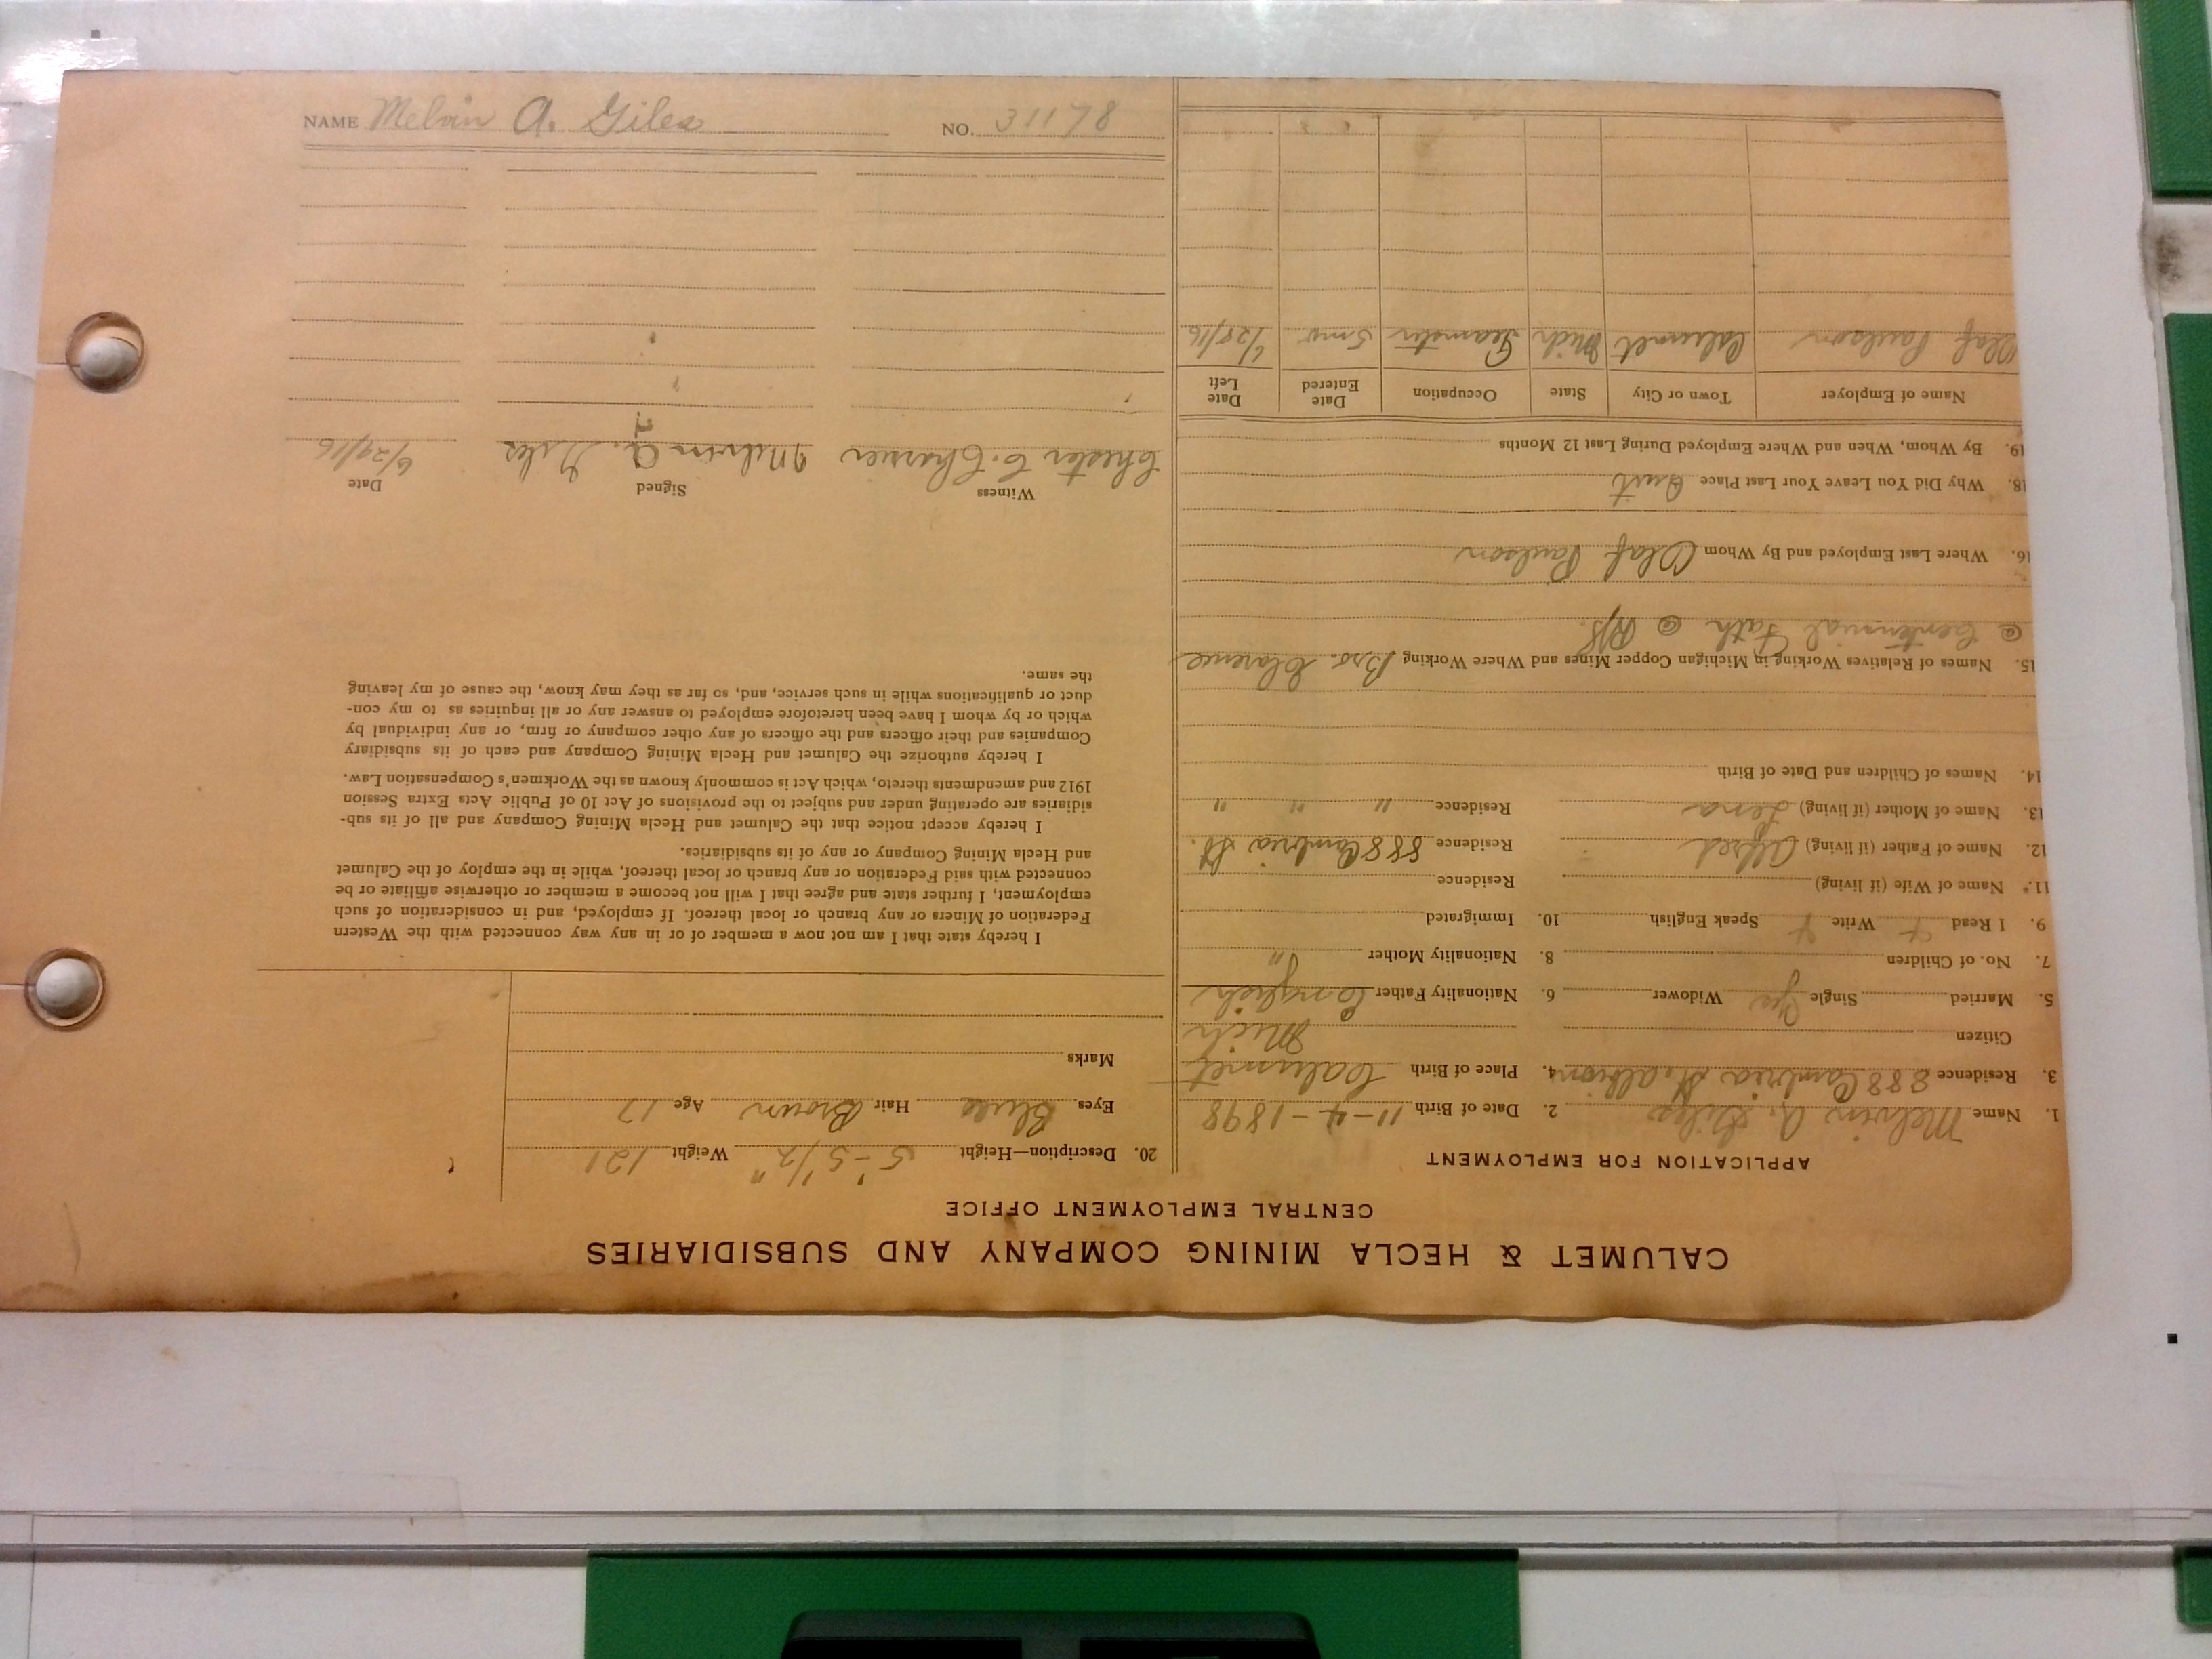 CALUMET & HECLA MINING COMPANY AND SUBSIDIARIES
CENTRAL EMPLOYMENT OFFICE
APPLICATION FOR EMPLOYMENT
1. Name Melvin A. Giles 2. Date of Birth 11-4-1898
3. Residence 888 Cambria St. Albion 4. Place of Birth Calumet
Citizen Mich
5. Married Single Yes Widower 6. Nationality Father English
7. No. of Children 8. Nationality Mother "
9. I Read Write Speak English 10. Immigrated
11. Name of Wife (if living) Residence
12. Name of Father (if living) Alfred Residence 888 Cambria St.
13. Name of Mother (if living) Lena Residence " " "
14. Names of Children and Date of Birth
15. Names of Relatives Working in Michigan Copper Mines and Where Working Bro. Clarence
@ Centennial Fath @ R/S.
16. Where Last Employed and By Whom Olaf Paulson
18. Why Did You Leave Your Last Place Quit
19. By Whom, When and Where Employed During Last 12 Months
Name of Employer Town or City State Occupation Date Entered Date Left
Olaf Paulson Calumet Mich Teamster 5mo 6/28/16
20. Description—Height 5'-5 1/2" Weight 121
Eyes Blue Hair Brown Age 17
Marks
I hereby state that I am not now a member of or in any way connected with the Western
Federation of Miners or any branch or local thereof. If employed, and in consideration of such
employment, I further state and agree that I will not become a member or otherwise affiliate or be
connected with said Federation or any branch or local thereof, while in the employ of the Calumet
and Hecla Mining Company or any of its subsidiaries.
I hereby accept notice that the Calumet and Hecla Mining Company and all of its sub-
sidiaries are operating under and subject to the provisions of Act 10 of Public Acts Extra Session
1912 and amendments thereto, which Act is commonly known as the Workmen's Compensation Law.
I hereby authorize the Calumet and Hecla Mining Company and each of its subsidiary
Companies and their officers and the officers of any other company or firm, or any individual by
which or by whom I have been heretofore employed to answer any or all inquiries as to my con-
duct or qualifications while in such service, and, so far as they may know, the cause of my leaving
the same.
Witness Signed Date
Chester C. Melvin A. Giles 6/29/16
NAME Melvin A. Giles NO. 31178